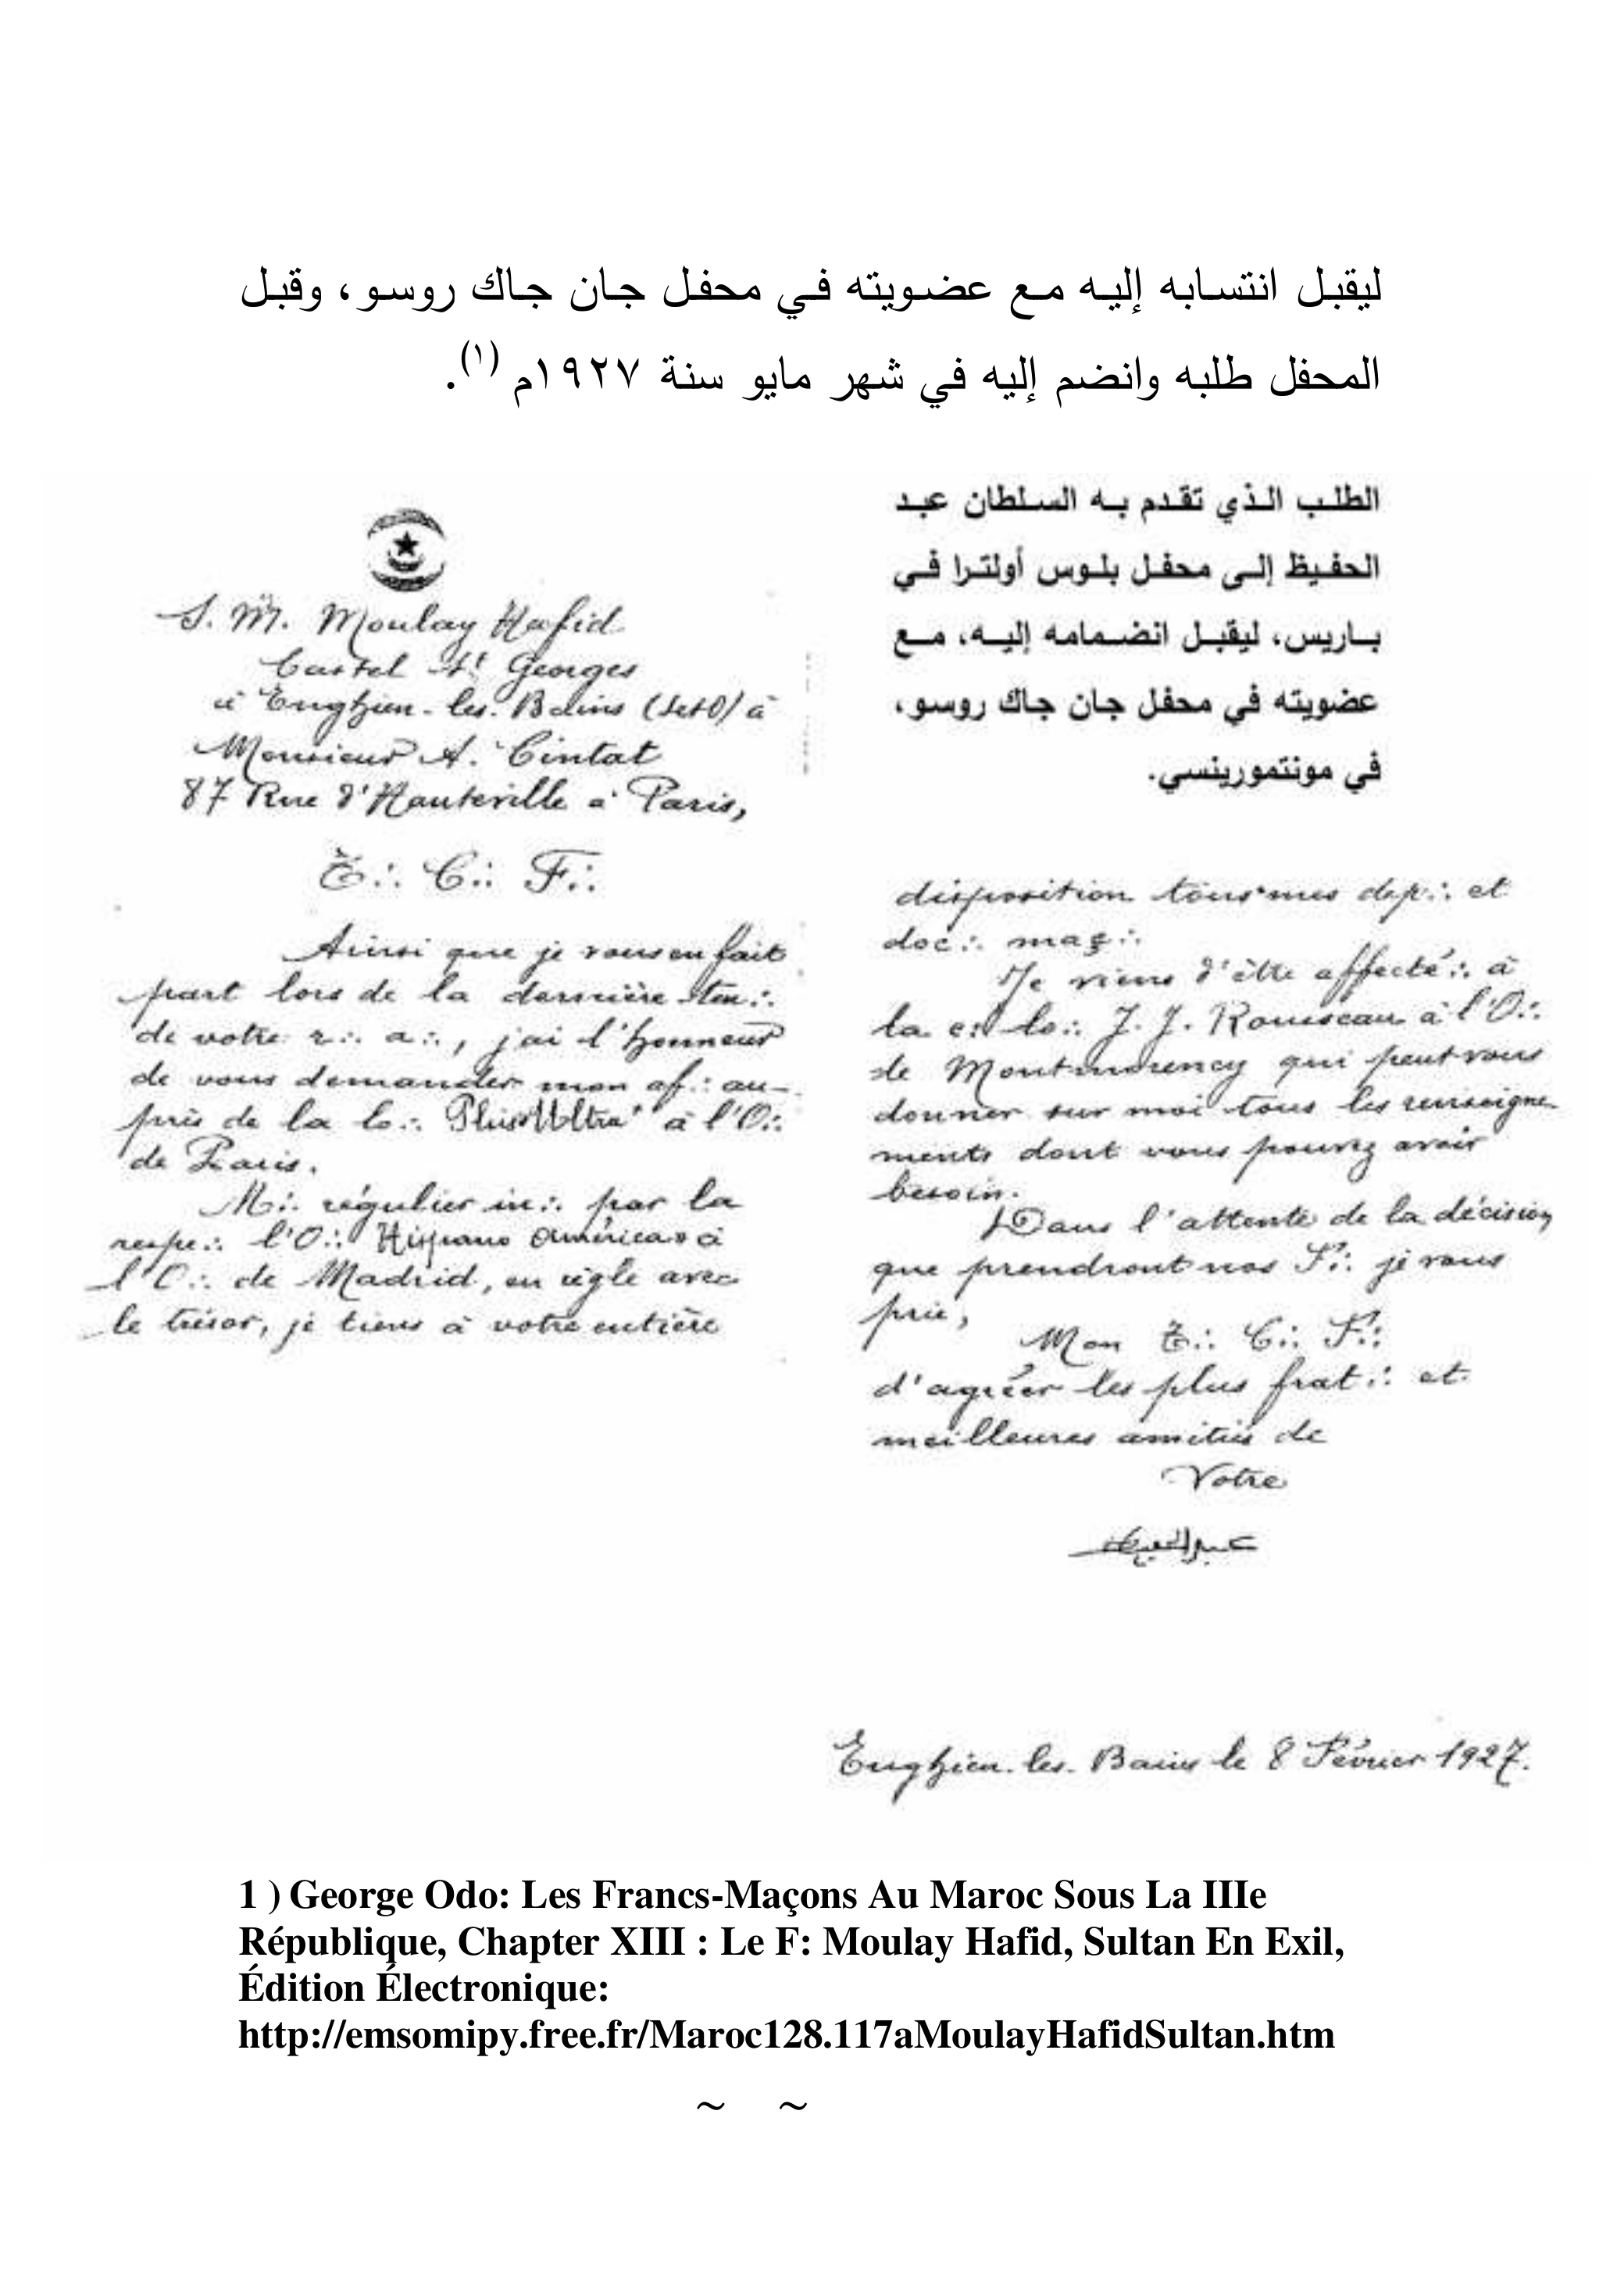 ليقبل انتسابه إليه مع عضويته في محفل جان جاك روسو، وقبل
المحفل طلبه وانضم إليه في شهر مايو سنة ١٩٢٧م (١).
الطلب الذي تقدم به السلطان عبد
الحفيظ إلى محفل بلوس أولترا في
باريس، ليقبل انضمامه إليه، مع
عضويته في محفل جان جاك روسو،
في مونتمورينسي.
S. M. Moulay Hafid
Castel St Georges
à Enghien-les-Bains (S et O) à
Monsieur A. Cintat
87 Rue d'Hauteville à Paris,
T∴ C∴ F∴
Ainsi que je vous en fait
part lors de la dernière ten∴
de votre r∴ a∴, j'ai l'honneur
de vous demander mon af∴ au-
près de la lo∴ "Plus Ultra" à l'O∴
de Paris.
M∴ régulier in∴ par la
respe∴ l'O∴ Hispano América à
l'O∴ de Madrid, en règle avec
le trésor, je tiens à votre entière
disposition tous mes dep∴ et
doc∴ maç∴
Je viens d'être affecté∴ à
la lo∴ J. J. Rousseau à l'O∴
de Montmorency qui peut vous
donner sur moi tous les renseigne-
ments dont vous pouvez avoir
besoin.
Dans l'attente de la décision
que prendront nos F∴ je vous
prie,
Mon T∴ C∴ F∴
d'agréer les plus frat∴ et
meilleures amitiés de
Votre
عبد الحفيظ
Enghien-les-Bains le 8 Février 1927.
1 ) George Odo: Les Francs-Maçons Au Maroc Sous La IIIe
République, Chapter XIII : Le F: Moulay Hafid, Sultan En Exil,
Édition Électronique:
http://emsomipy.free.fr/Maroc128.117aMoulayHafidSultan.htm
~ ~